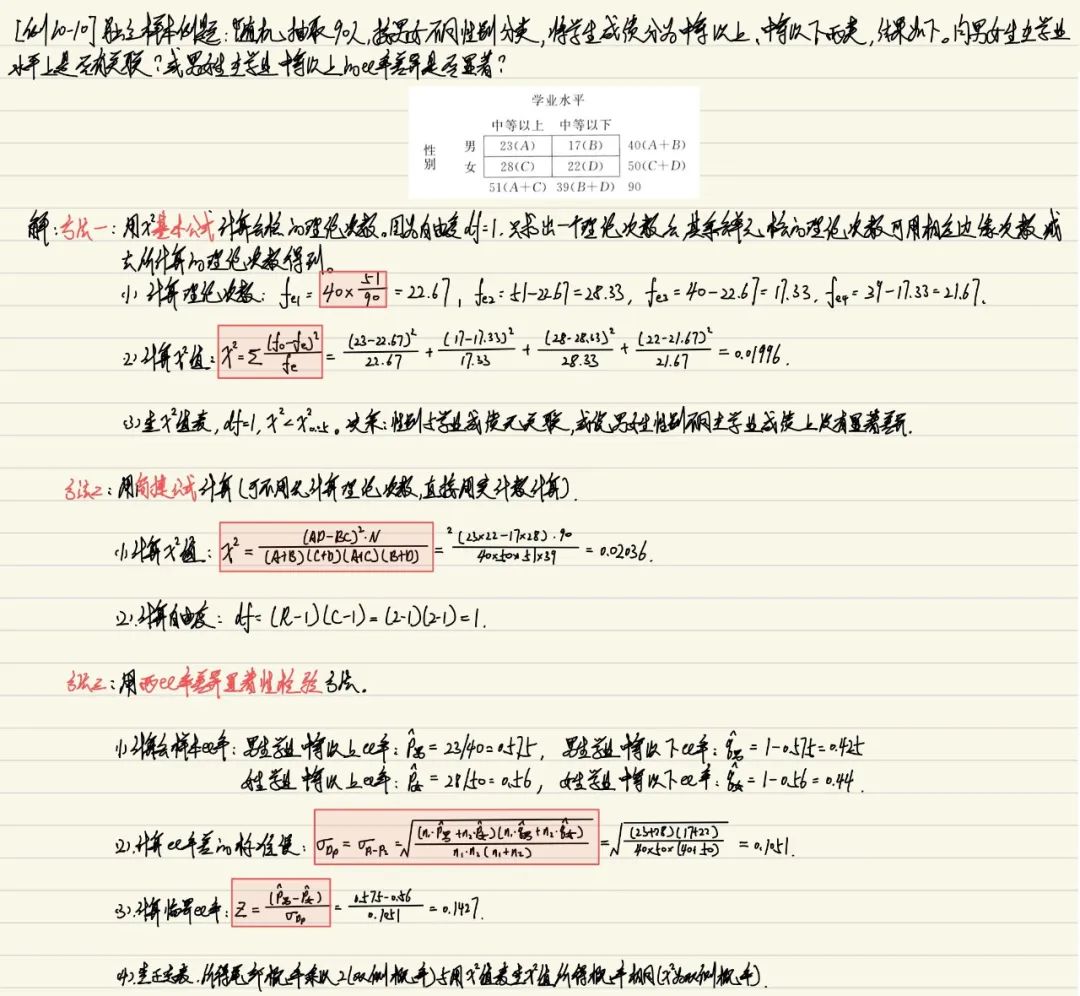 [例10-10] 独立样本例题:随机抽取90人,按男女不同性别分类,将学生成绩分为中等以上、中等以下两类,结果如下。问男女生在学业
水平上是否有关联?或男女生在学业中等以上的比率差异是否显著?
学业水平
中等以上 中等以下
性别
男 23(A) 17(B) 40(A+B)
女 28(C) 22(D) 50(C+D)
51(A+C) 39(B+D) 90
解:方法一:用χ²基本公式计算各格的理论次数。因为自由度df=1,只求出一个理论次数后,其余各单元格的理论次数可用相应边缘次数减
去所计算的理论次数得到。
(1) 计算理论次数: fe1 = 40×51/90 = 22.67, fe2=51-22.67=28.33, fe3=40-22.67=17.33, fe4=39-17.33=21.67.
(2) 计算χ²值: χ²=Σ(f0-fe)²/fe = (23-22.67)²/22.67 + (17-17.33)²/17.33 + (28-28.33)²/28.33 + (22-21.67)²/21.67 = 0.01996.
(3) 查χ²值表, df=1, χ²<χ²0.05。决策:性别与学业成绩无关联,或说男女生性别不同在学业成绩上没有显著差异.
方法二:用简捷公式计算(可不用先计算理论次数,直接用实计数计算).
(1) 计算χ²值: χ² = (AD-BC)²·N/(A+B)(C+D)(A+C)(B+D) = ²(23×22-17×28)·90/40×50×51×39 = 0.02036.
(2) 计算自由度: df=(R-1)(C-1)=(2-1)(2-1)=1.
方法三:用两比率差异显著性检验方法。
(1) 计算各样本比率:男生学业中等以上比率: p̂男=23/40=0.575, 男生学业中等以下比率: q̂男=1-0.575=0.425
女生学业中等以上比率: p̂女=28/50=0.56, 女生学业中等以下比率: q̂女=1-0.56=0.44.
(2) 计算比率差的标准误: σDp=σp1-p2=√((n1·p̂男+n2·p̂女)(n1·q̂男+n2·q̂女)/n1·n2(n1+n2)) = √((23+28)(17+22)/40×50×(40+50)) = 0.1051.
(3) 计算临界比率: Z=(p̂男-p̂女)/σDp = 0.575-0.56/0.1051 = 0.1427.
(4) 查正态表,所得尾部概率乘以2(双侧概率)与用χ²值表查χ²值所得概率相同(χ²为双侧概率).